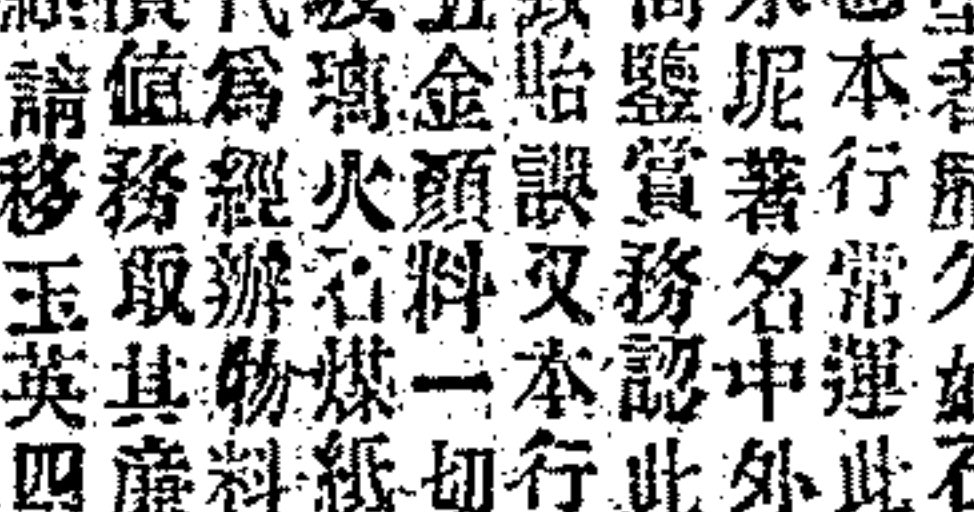 久
本行常運此
水坭著名中外
鑒賞務認此
致貽誤又本行
五金顏料一切
玻璃火石煤紙
代爲經辦物料
價值務取其廉
請移玉英四